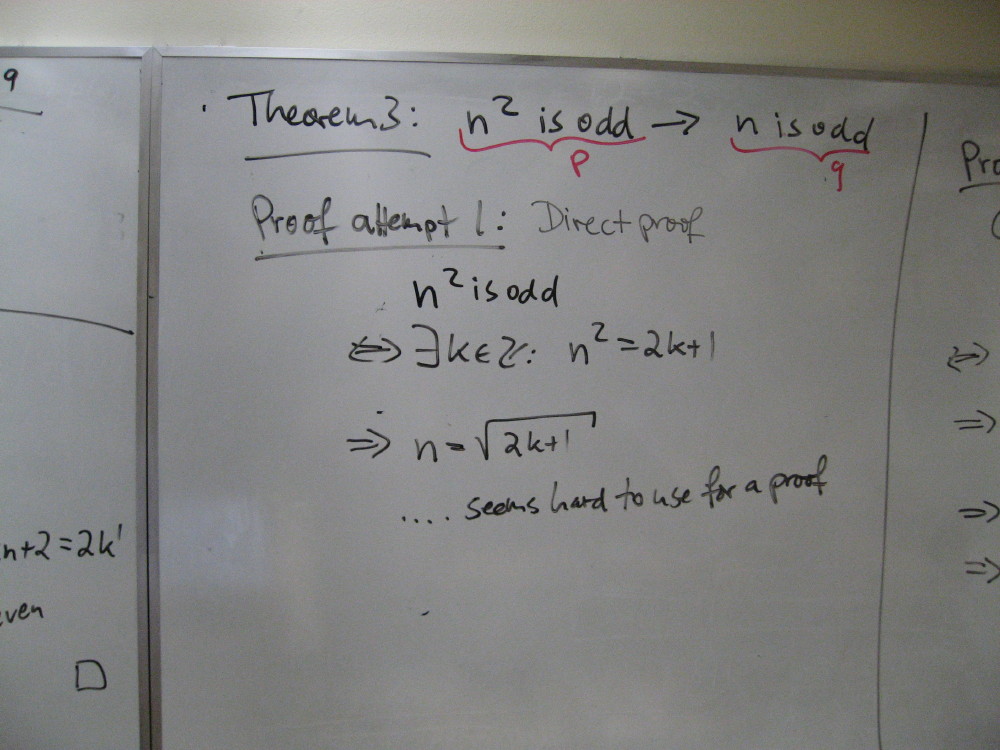 9
· Theorem 3: n² is odd → n is odd
p q
Proof attempt 1: Direct proof
n² is odd
⇔ ∃k∈ℤ: n² = 2k+1
⇒ n = √2k+1
.... seems hard to use for a proof
n+2 = 2k'
ven
□
Pro
(
⇔
⇒
⇒
⇒